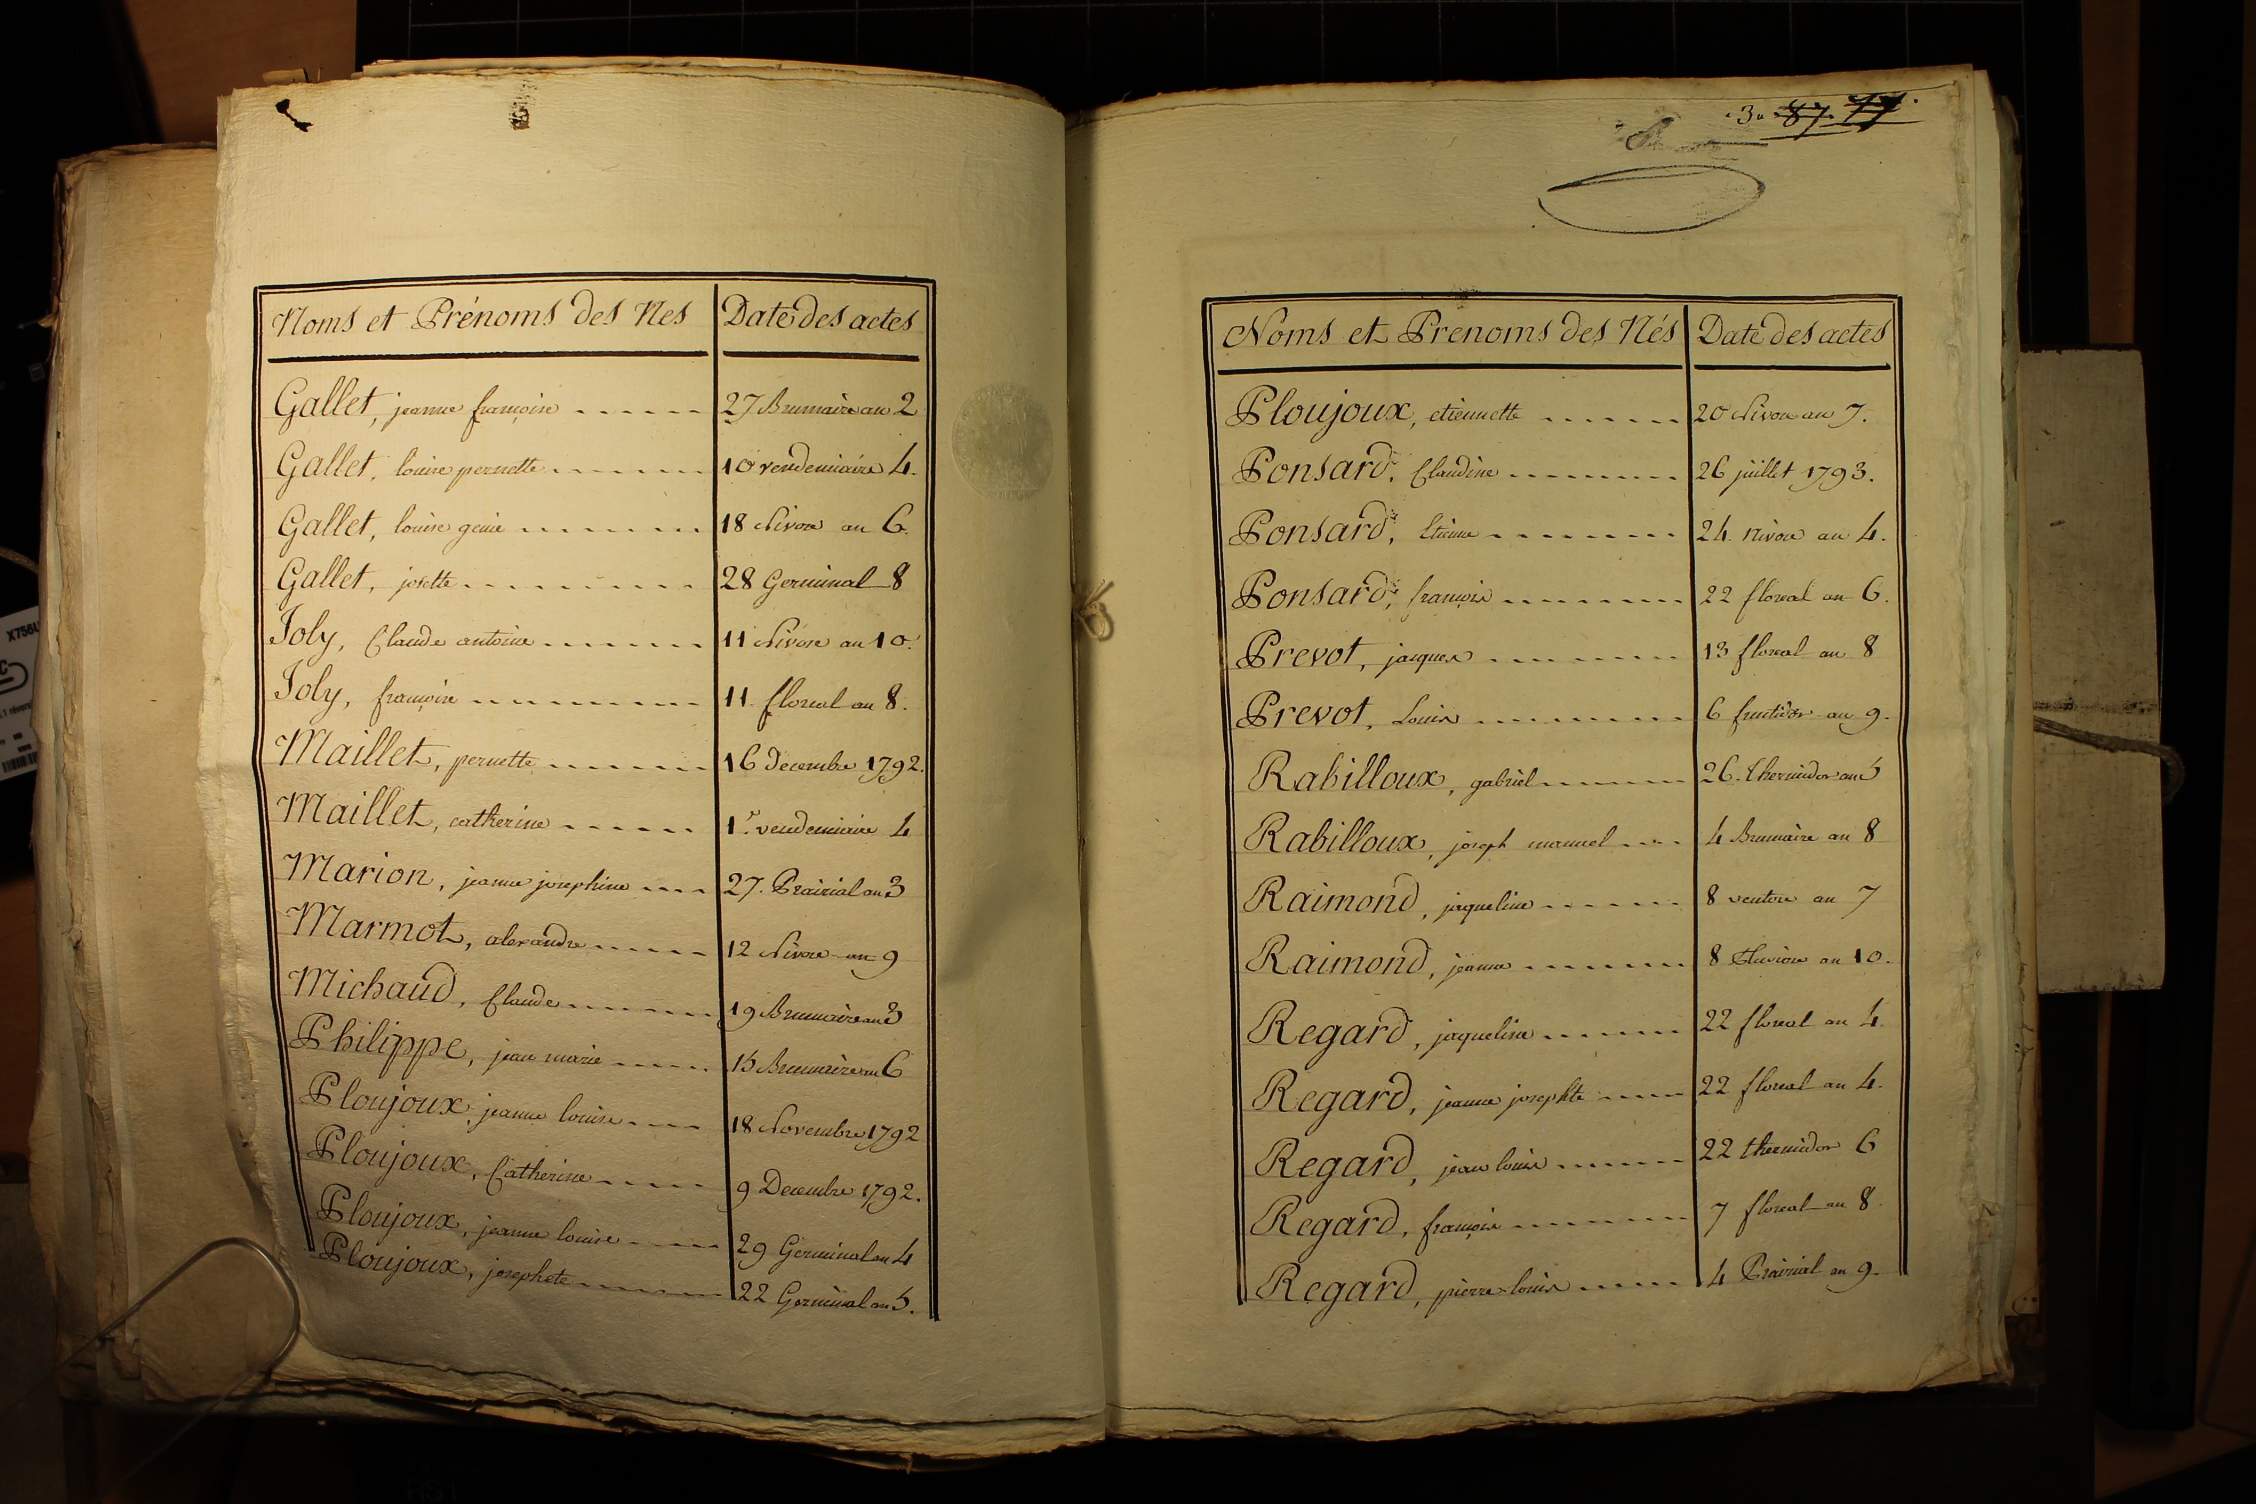 Noms et Prénoms des Nes Date des actes
Gallet, jeanne françoise 27 Brumaire an 2
Gallet, louise pernette 10 vendemiaire 4.
Gallet, louise genie 18 Nivose an 6.
Gallet, josette 28 Germinal 8
Joly, Claude antoine 11 Nivose an 10.
Joly, françoise 11 floreal an 8.
Maillet, pernette 16 decembre 1792.
Maillet, catherine 1.r vendemiaire 4
Marion, jeanne josephine 27. Prairial an 3
Marmot, alexandre 12 Nivose an 9
Michaud, Claude 19 Brumaire an 3
Philippe, jean marie 15 Brumaire an 6
Ploujoux, jeanne louise 18 Novembre 1792
Ploujoux, Catherine 9 Decembre 1792.
Ploujoux, jeanne louise 29 Germinal an 4
Ploujoux, josephete 22 Germinal an 5.
3. 87. 77.
Noms et Prenoms des Nés Date des actes
Ploujoux, etiennette 20 Nivose an 7.
Ponsard, Claudine 26 juillet 1793.
Ponsard, Etienne 24. nivose an 4.
Ponsard, françois 22 floreal an 6.
Prevot, jacques 13 floreal an 8
Prevot, Louis 6 fructidor an 9.
Rabilloux, gabriel 26. thermidor an 5
Rabilloux, joseph manuel 4 Brumaire an 8
Raimond, jaqueline 8 ventose an 7
Raimond, jeanne 8 Pluviose an 10.
Regard, jaqueline 22 floreal an 4.
Regard, jeanne josephte 22 floreal an 4.
Regard, jean louis 22 thermidor 6
Regard, françois 7 floreal an 8.
Regard, pierre-louis 4 Prairial an 9.